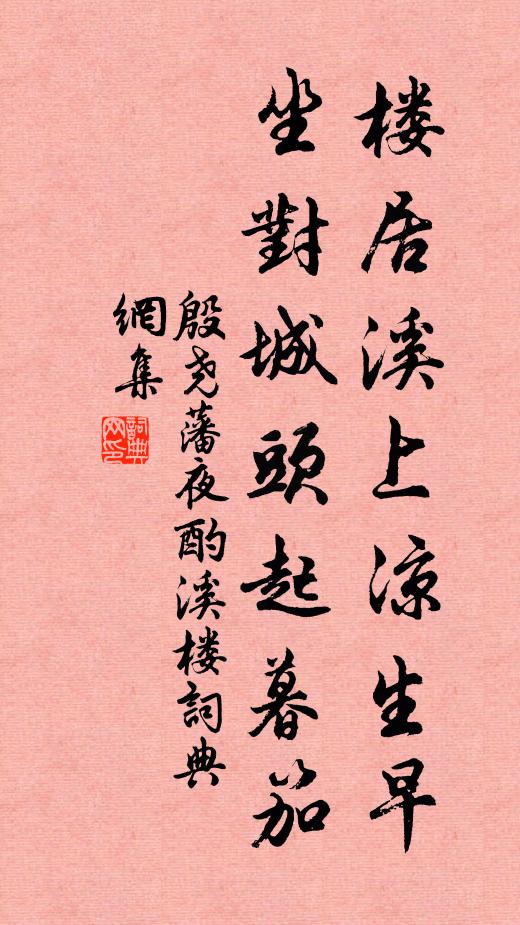 楼居溪上凉生早
坐對城頭起暮笳
殷尧藩夜酌溪楼詞典
網集
詞典
网印